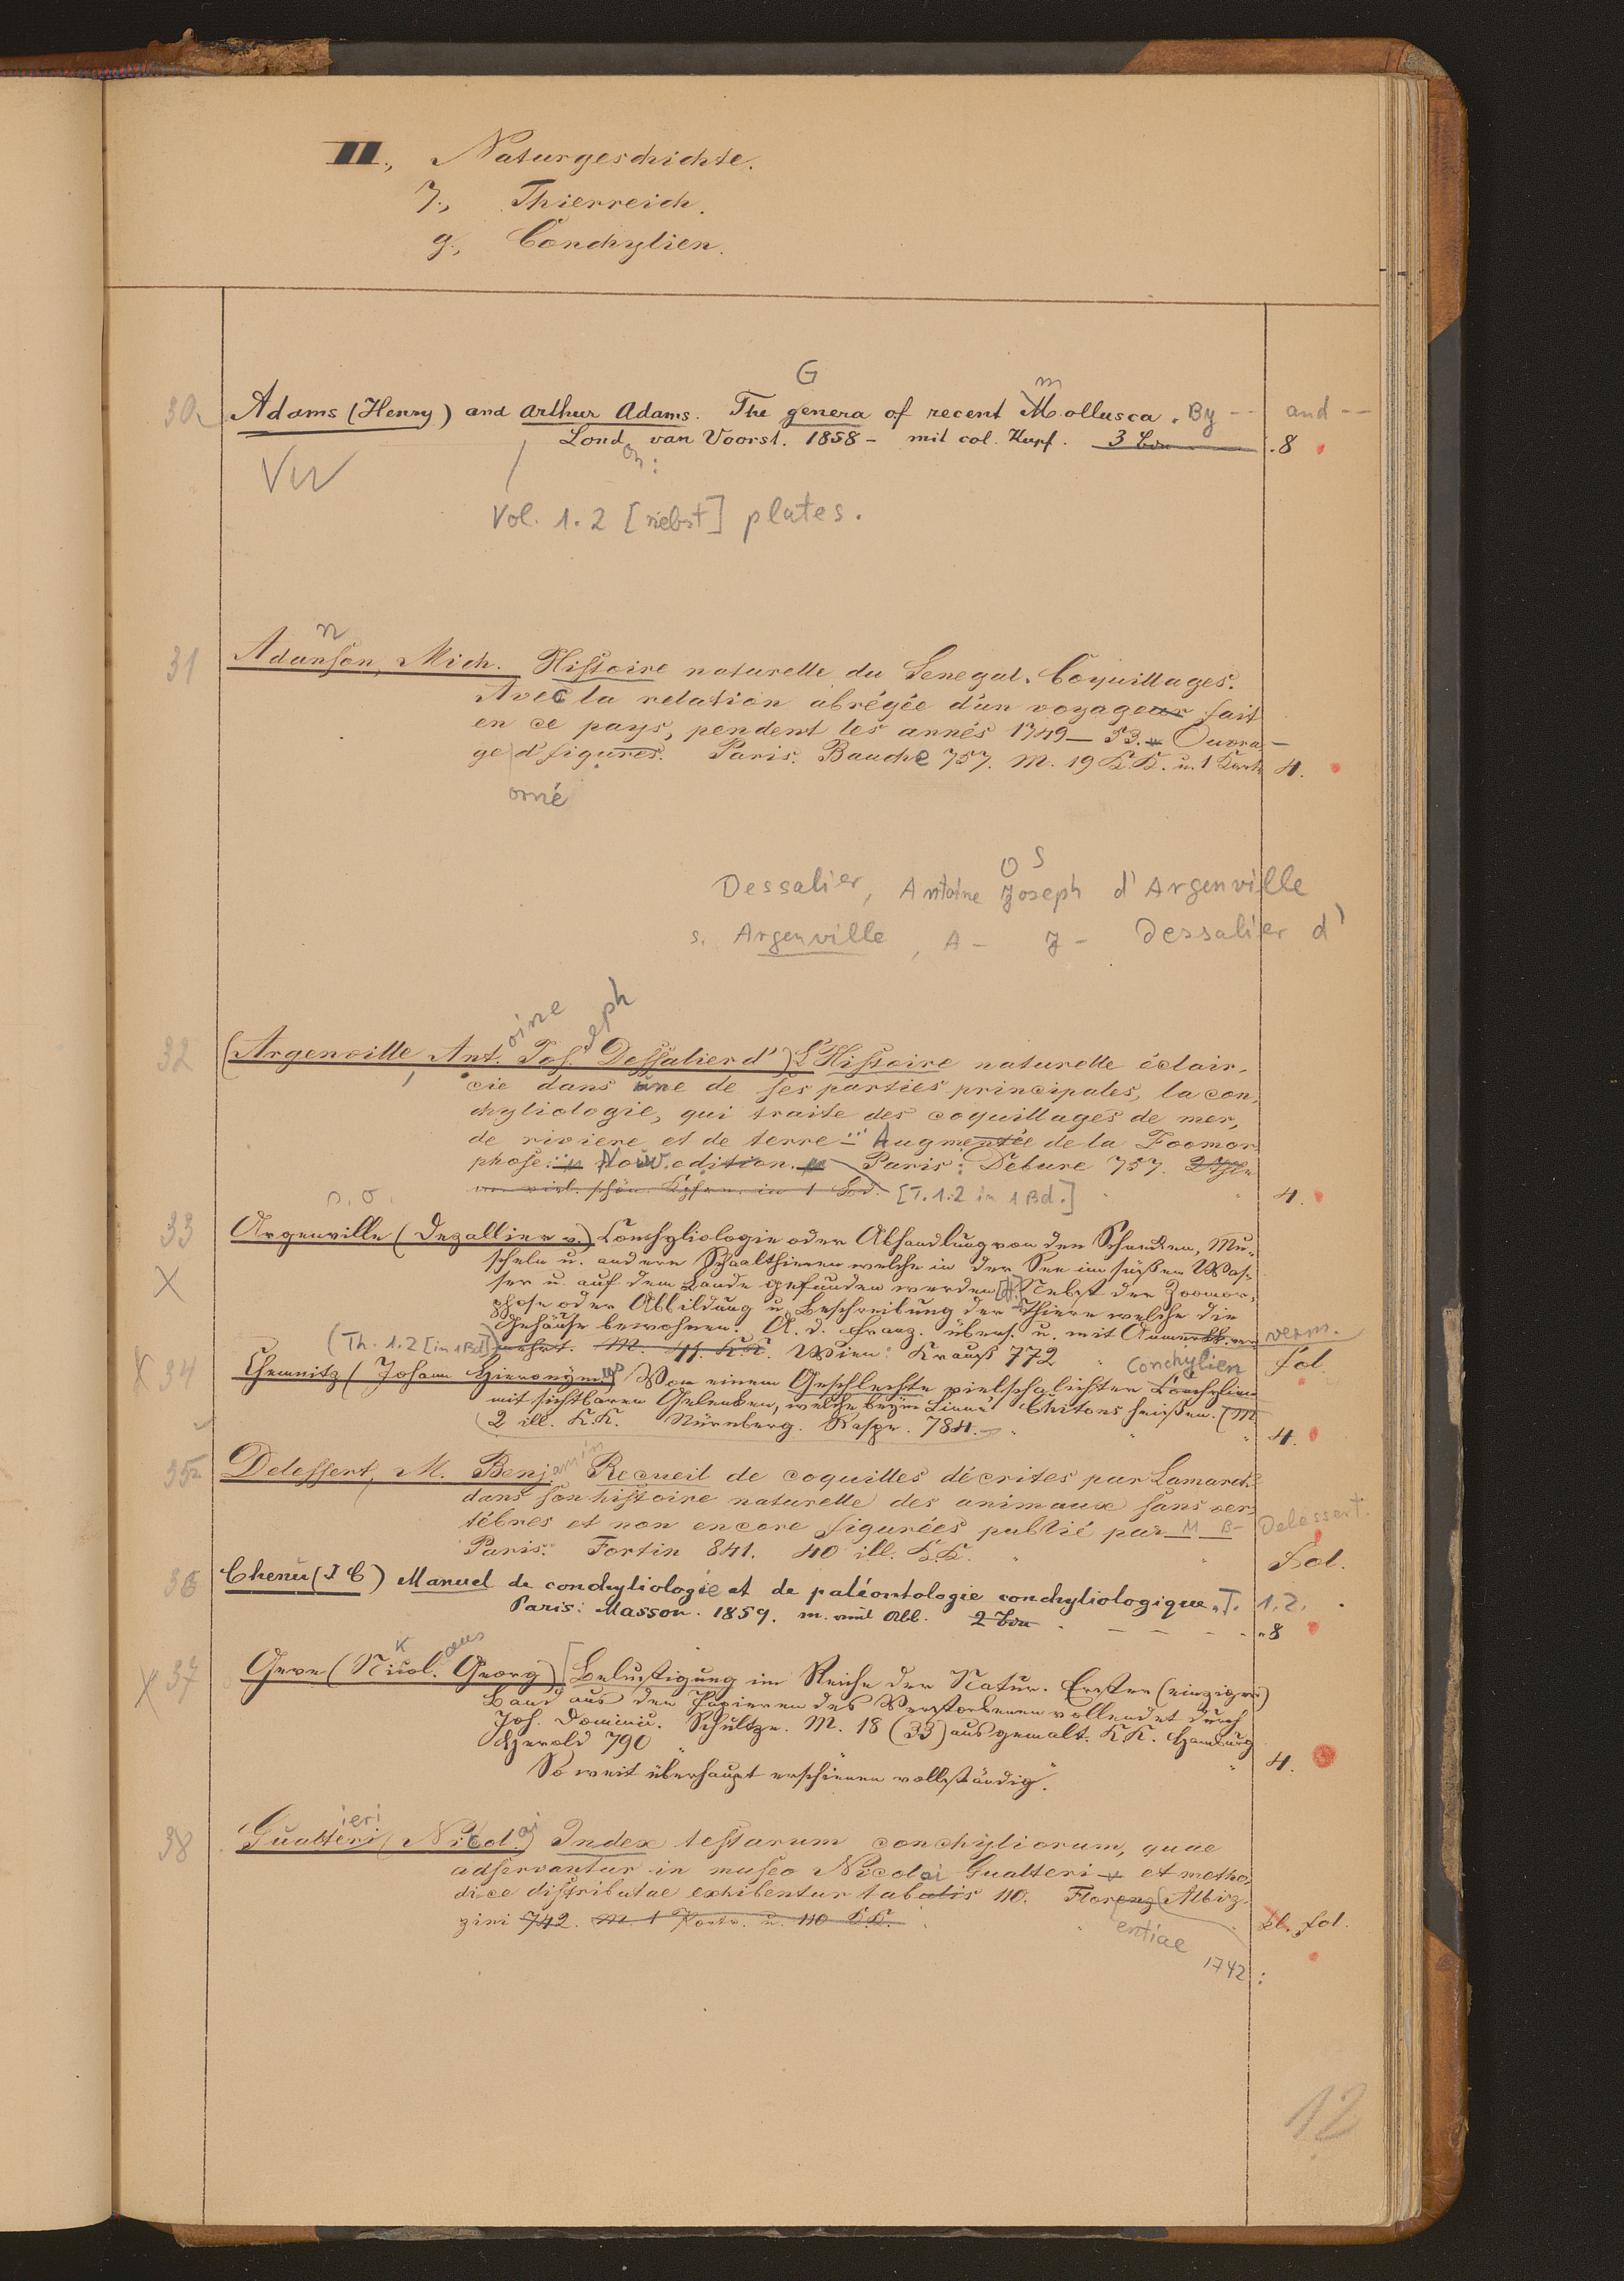 II., Naturgeschichte.
7., Thierreich.
g., Conchylien.
G m
30. Adams (Henry) and Arthur Adams. The genera of recent Mollusca. By -- and --
Lond. van Voorst. 1858 - mit col. Kupf. 3 Bde .8
on:
VW
Vol. 1.2 [nebst] plates.
n
31 Adanson, Mich. Histoire naturelle du Senegal. Coquillages.
Avec la relation abrégée d'un voyageur fait
en ce pays, pendent les annés 1749 - 53. Ouvra-
ge d figures. Paris. Bauche 757. M. 19 K.K. u. 1 Karte 4.
orné
O S
Dessalier, Antoine Joseph d'Argenville
s. Argenville, A - J - Dessalier d'
oine seph
32 (Argenville, Ant. Jos. Dessalier d') L'Histoire naturelle éclair-
cie dans une de ses parties principales, la con-
chyliologie, qui traite des coquillages de mer,
de riviere et de terre ... Augmentée de la Zoomor-
phose. Nouv. edition. Paris: Debure 757. 2 Thle
m. viel. schön. Kpfrn. in 1 Bd. [T. 1.2 in 1 Bd.] 4.
n. o.
33 Argenville (Dezallier v.) Conchyliologie oder Abhandlung von den Schnecken, Mu-
scheln u. andern Schaalthieren welche in der See im süßen Was-
ser u. auf dem Lande gefunden werden Nebst der Zoomor-
X
phose oder Abbildung u. Beschreibung der Thiere welche die
Gehäuse bewohnen. A. d. Franz. übers. u. mit Anmerkk. ver- verm.
(Th. 1.2 [in 1 Bd]) mehrt. M. 41. K.K. Wien: Krauß 772 " fol.
Conchylien
X 34 Chemnitz (Johann Hieronymus) Von einem Geschlechte vielschalichter Conchylien
mit sichtbaren Gelenken, welche beym Linné Chitons heißen. (M.
2 ill. K.K. Nürnberg. Raspe. 784. " " 4.
35 Delessert, M. Benjamin Recueil de coquilles décrites par Lamarck
dans son histoire naturelle des animaux sans ver-
tébres et non encore figurées publié par M B- Delessert.
Paris. Fortin 841. 40 ill. K.K. " " Fol.
36 Chenu (J C) Manuel de conchyliologie et de paléontologie conchyliologique. T. 1.2.
Paris: Masson. 1859. m. viel Abb. 2 Bde .8
k aus
X 37 Geve (Nicol. Georg) [Belustigung im Reiche der Natur. Erster (einziger)
Band aus den Papieren des Verstorbenen vollendet durch
Joh. Dominic. Schultze. M. 18 (33) ausgemalt. K.K. Hamburg
Herold 790 " " 4.
So weit überhaupt erschienen vollständig.
ieri
38 Gualteri (Nicol.ai) Index testarum conchyliorum, quae
adservantur in museo Nicolai Gualteri et metho-
dice distributae exhibentur tabulis 110. Florenz (Albiz-
zini 742. M. 1 Portr. u. 110 K.K. " " kl. fol.
entiae
1742 :
12